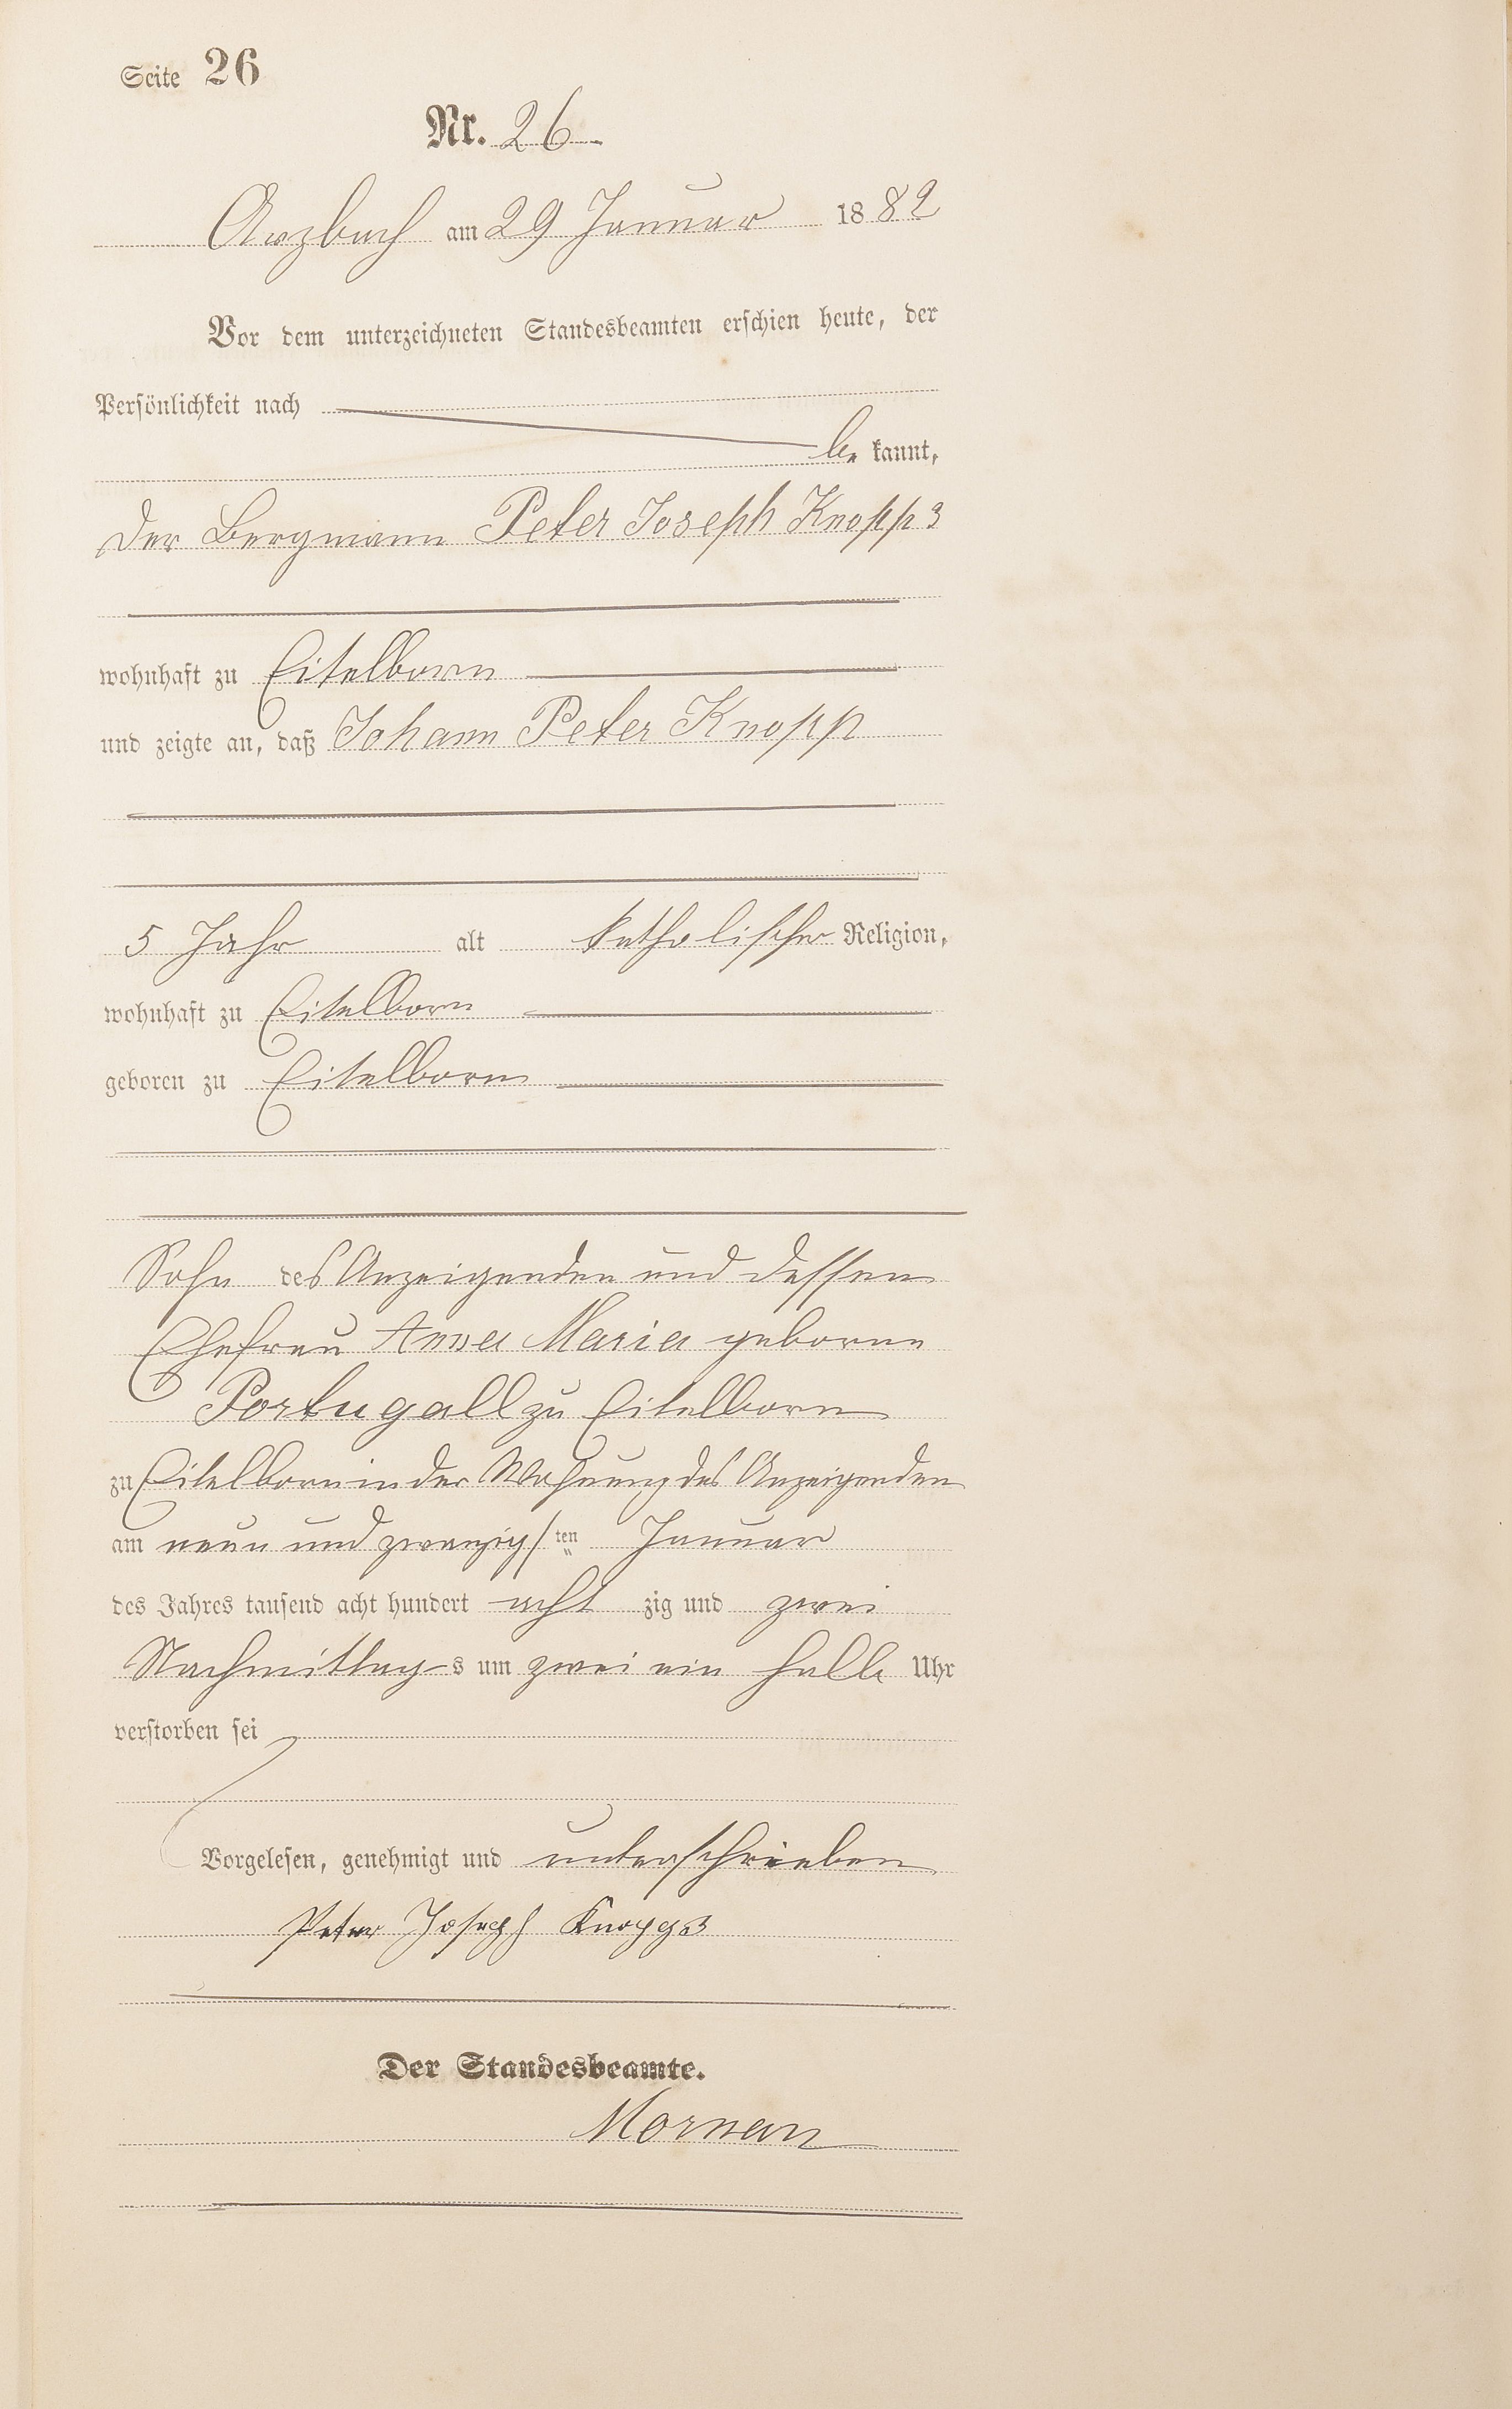 Seite 26
Nr. 26
Arzbach am 29 Januar 1882
Vor dem unterzeichneten Standesbeamten erschien heute, der
Persönlichkeit nach
be kannt,
der Bergmann Peter Joseph Knopp 3
wohnhaft zu Eitelborn
und zeigte an, daß Johann Peter Knopp
5 Jahr alt katholischer Religion,
wohnhaft zu Eitelborn
geboren zu Eitelborn
Sohn des Anzeigenden und dessen
Ehefrau Anna Maria geborne
Portugall zu Eitelborn
zu Eitelborn in der Wohnung des Anzeigenden
am neun und zwanzigsten Januar
des Jahres tausend acht hundert acht zig und zwei
Nachmittags um zwei ein halb Uhr
verstorben sei
Vorgelesen, genehmigt und unterschrieben
Peter Joseph Knopp 3
Der Standesbeamte.